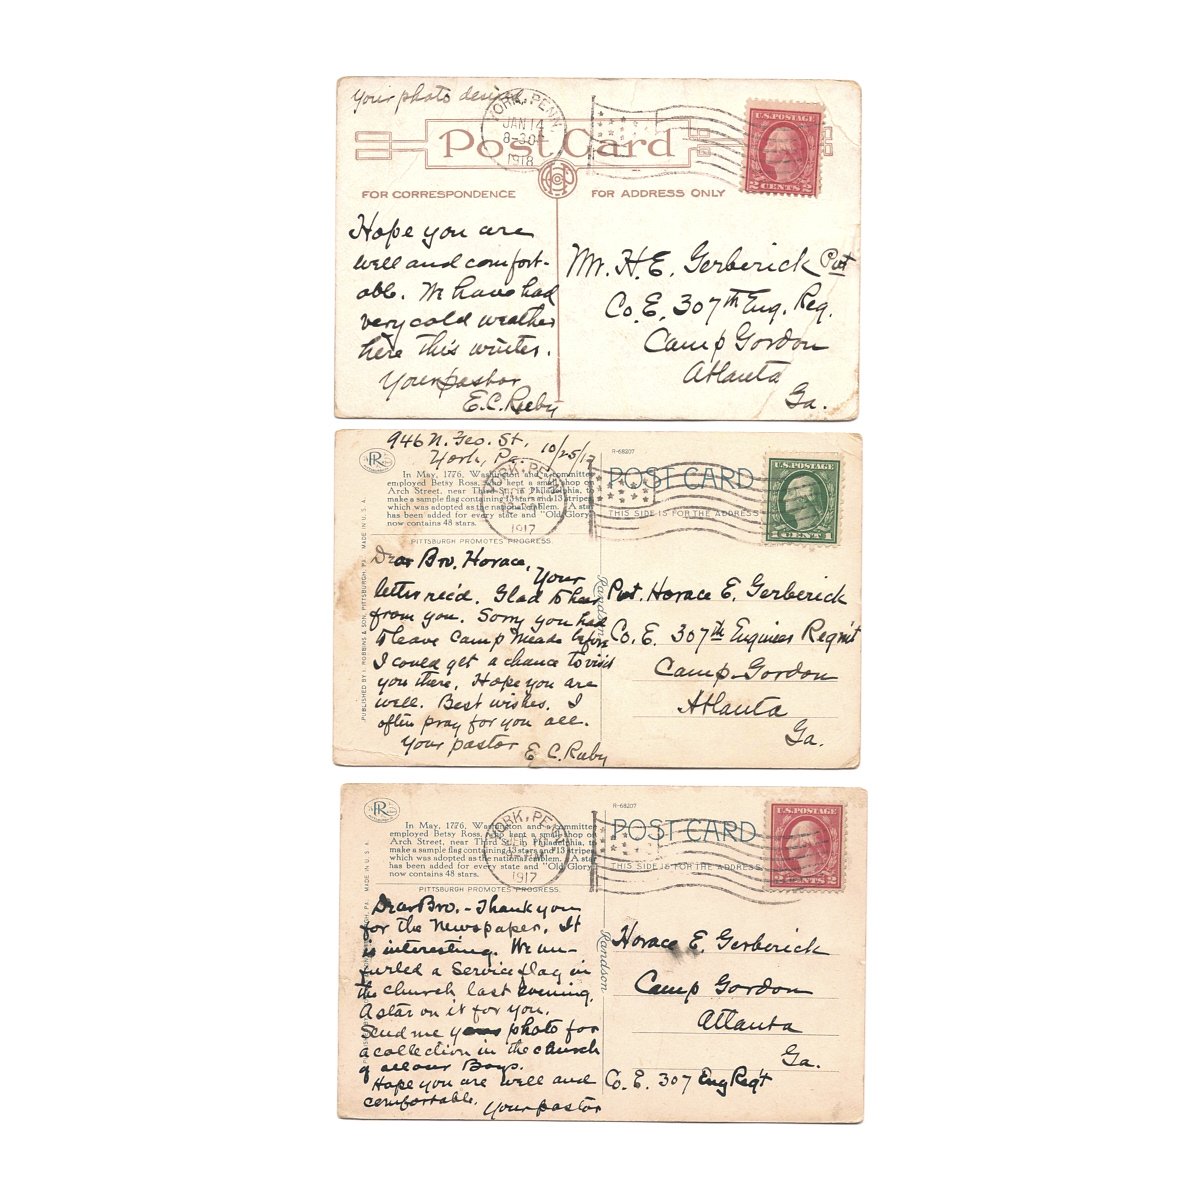 Your photo desired
YORK, PENN.
JAN 14
8-30P
1918
U.S. POSTAGE
2 CENTS 2
Post Card
FOR CORRESPONDENCE
FOR ADDRESS ONLY
Hope you are
well and comfort-
able. We have had
very cold weather
here this winter.
Your pastor
E.C. Ruby
Mr. H.E. Gerberick Pvt
Co. E. 307th Eng. Reg.
Camp Gordon
Atlanta
Ga.
946 N. Geo. St, 10/25/17
York, Pa.
PR
In May, 1776, Washington and a committee
employed Betsy Ross, who kept a small shop on
Arch Street, near Third St., in Philadelphia, to
make a sample flag containing 13 stars and 13 stripes
which was adopted as the national emblem. A star
has been added for every state and "Old Glory"
now contains 48 stars.
PITTSBURGH PROMOTES PROGRESS.
PUBLISHED BY I. ROBBINS & SON, PITTSBURGH, PA. MADE IN U.S.A.
YORK, PENN.
1917
R-68207
POST CARD
THIS SIDE IS FOR THE ADDRESS
U.S. POSTAGE
1 CENT 1
Randson
Dear Bro. Horace,
Your
letter rec'd. Glad to hear
from you. Sorry you had
to leave Camp Meade before
I could get a chance to visit
you there. Hope you are
well. Best wishes. I
often pray for you all.
Your pastor
E. C. Ruby
Pvt. Horace E. Gerberick
Co. E. 307th Engineer Regm't
Camp Gordon
Atlanta
Ga.
PR
In May, 1776, Washington and a committee
employed Betsy Ross, who kept a small shop on
Arch Street, near Third St., in Philadelphia, to
make a sample flag containing 13 stars and 13 stripes
which was adopted as the national emblem. A star
has been added for every state and "Old Glory"
now contains 48 stars.
PITTSBURGH PROMOTES PROGRESS.
MADE IN U.S.A.
YORK, PENN.
1917
R-68207
POST CARD
THIS SIDE IS FOR THE ADDRESS
U.S. POSTAGE
2 CENTS 2
Randson
Dear Bro. - Thank you
for the Newspaper. It
is interesting. We un-
furled a Service flag in
the church last evening.
A star on it for you.
Send me your photo for
a collection in the church
of all our Boys.
Hope you are well and
comfortable. Your pastor
Horace E. Gerberick
Camp Gordon
Atlanta
Ga.
Co. E. 307 Eng Reg't